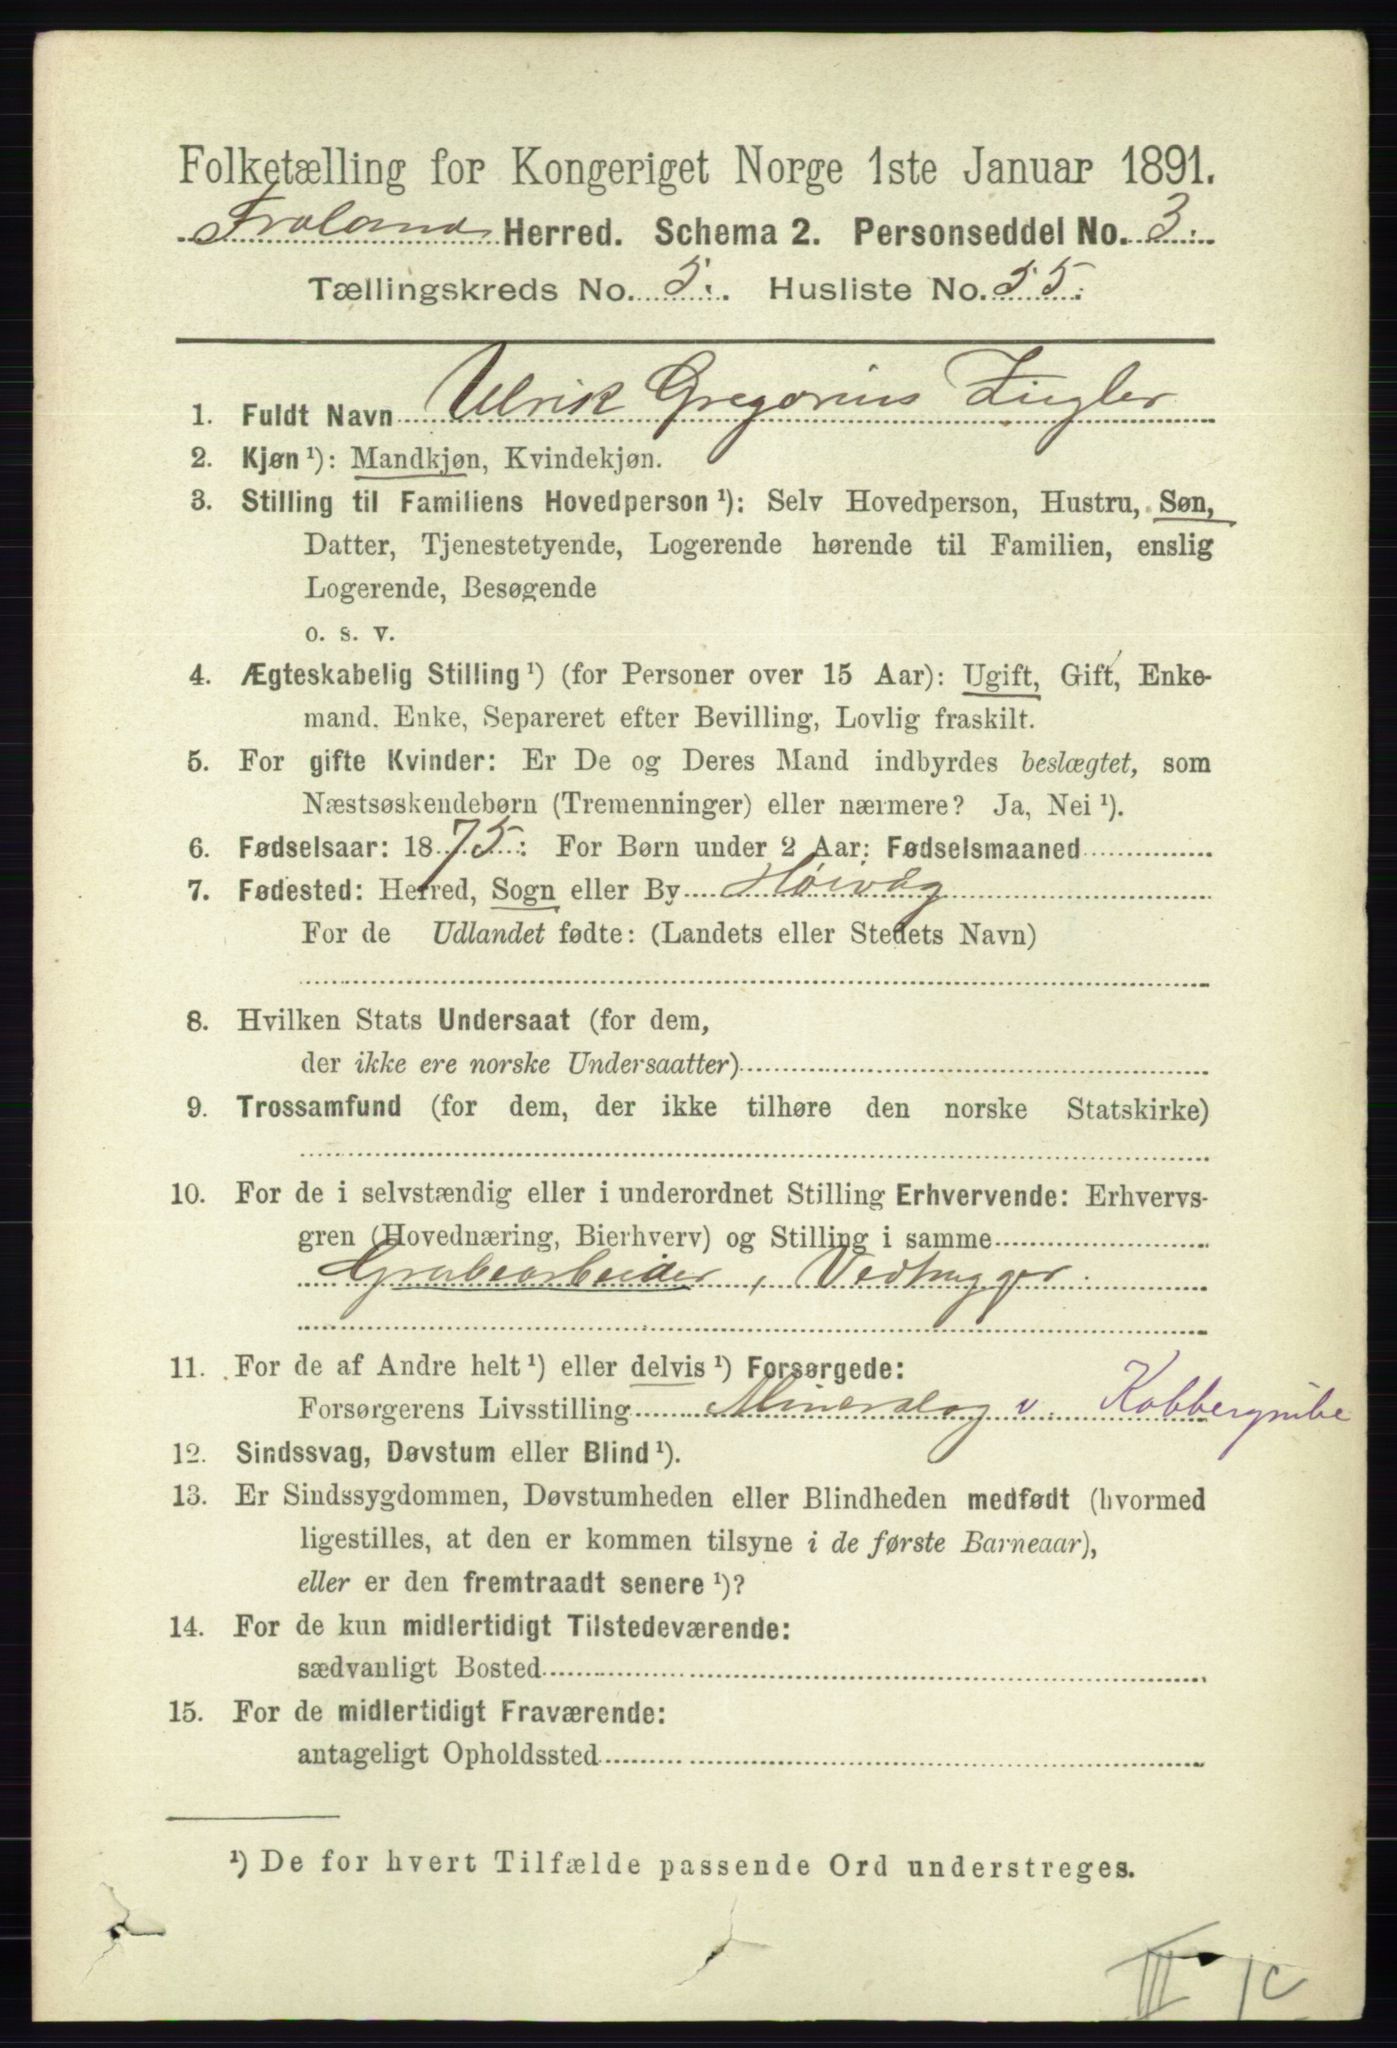 Folketælling for Kongeriget Norge 1ste Januar 1891.
Froland Herred. Schema 2. Personseddel No. 3.
Tællingskreds No. 5. Husliste No. 55.
1. Fuldt Navn Ulrik Gregorius Ziegler
2. Kjøn ¹): Mandkjøn, Kvindekjøn.
3. Stilling til Familiens Hovedperson ¹): Selv Hovedperson, Hustru, Søn,
Datter, Tjenestetyende, Logerende hørende til Familien, enslig
Logerende, Besøgende
o. s. v.
4. Ægteskabelig Stilling ¹) (for Personer over 15 Aar): Ugift, Gift, Enke-
mand, Enke, Separeret efter Bevilling, Lovlig fraskilt.
5. For gifte Kvinder: Er De og Deres Mand indbyrdes beslægtet, som
Næstsøskendebørn (Tremenninger) eller nærmere? Ja, Nei ¹).
6. Fødselsaar: 1875: For Børn under 2 Aar: Fødselsmaaned
7. Fødested: Herred, Sogn eller By Høivåg
For de Udlandet fødte: (Landets eller Stedets Navn)
8. Hvilken Stats Undersaat (for dem,
der ikke ere norske Undersaatter)
9. Trossamfund (for dem, der ikke tilhøre den norske Statskirke)
10. For de i selvstændig eller i underordnet Stilling Erhvervende: Erhvervs-
gren (Hovednæring, Bierhverv) og Stilling i samme
Grubearbeider, Vedhugger.
11. For de af Andre helt ¹) eller delvis ¹) Forsørgede:
Forsørgerens Livsstilling Mineralog v. Kobbergrube
12. Sindssvag, Døvstum eller Blind ¹).
13. Er Sindssygdommen, Døvstumheden eller Blindheden medfødt (hvormed
ligestilles, at den er kommen tilsyne i de første Barneaar),
eller er den fremtraadt senere ¹)?
14. For de kun midlertidigt Tilstedeværende:
sædvanligt Bosted
15. For de midlertidigt Fraværende:
antageligt Opholdssted
¹) De for hvert Tilfælde passende Ord understreges.
III 1c